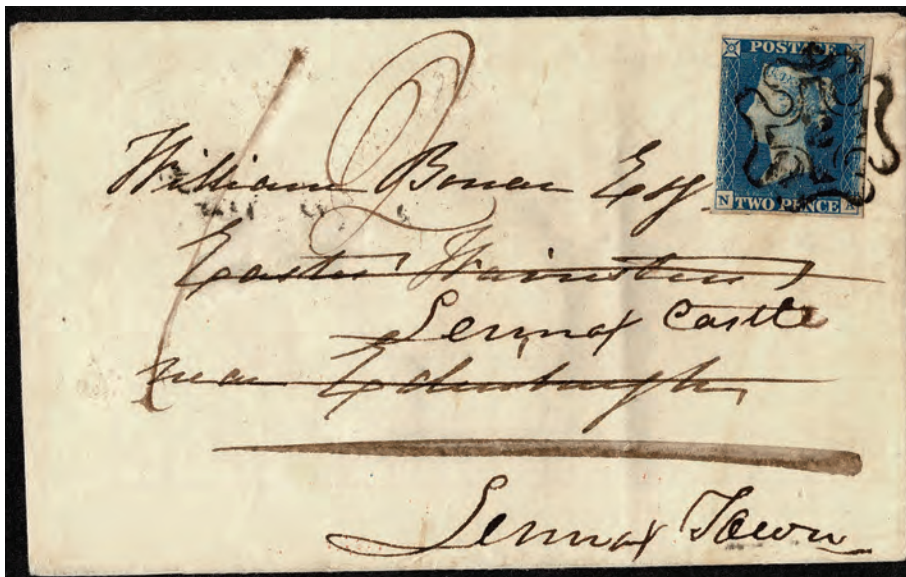 POSTAGE
TWO PENCE
N A
2
William Bonar Esq
Easter Warriston
Lennox Castle
near Edinburgh
Lennox Town